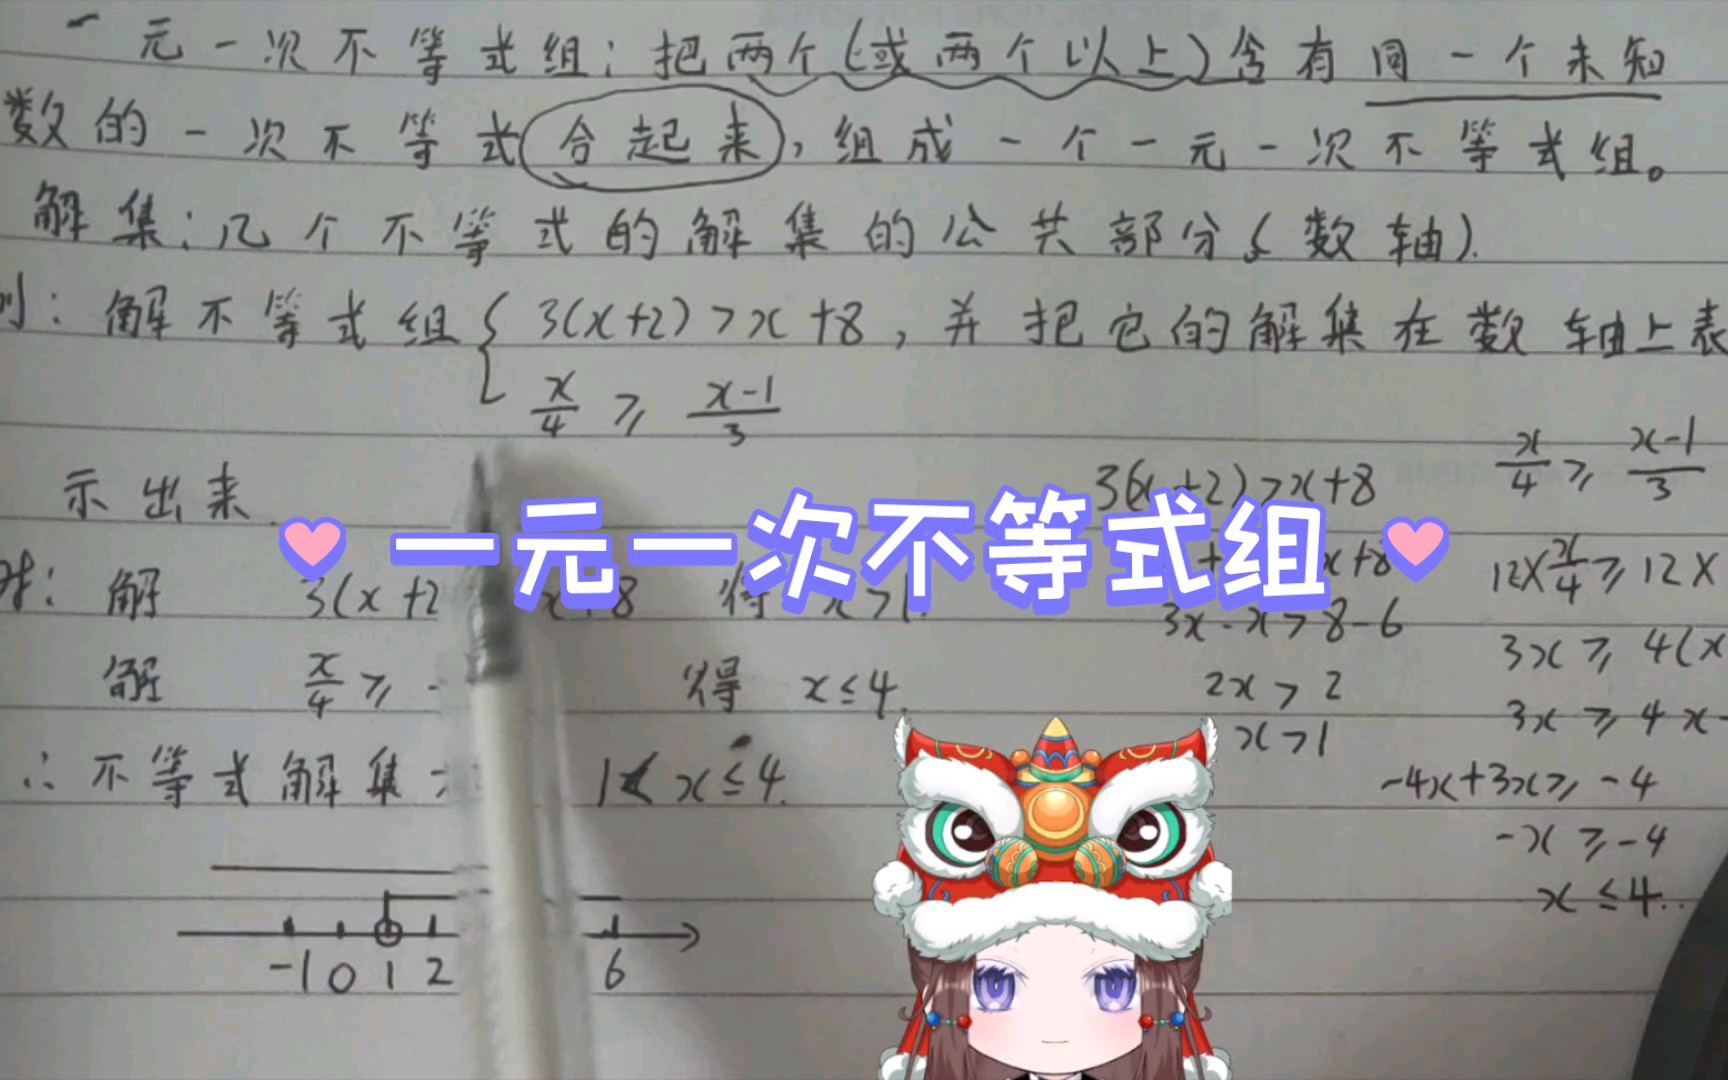 一元一次不等式组：把两个(或两个以上)含有同一个未知
数的一次不等式合起来，组成一个一元一次不等式组。
解集：几个不等式的解集的公共部分(数轴).
：解不等式组{3(x+2)>x+8，并把它的解集在数轴上表
x/4 ≥ (x-1)/3
示出来
一元一次不等式组
解 3(x+2 x+8 得 x>1.
解 x/4 ≥ 得 x≤4.
∴不等式解集 1<x≤4.
-1 0 1 2 6
3(x+2)>x+8
x+8
3x-x>8-6
2x>2
x>1
x/4 ≥ (x-1)/3
12×x/4 ≥ 12×
3x ≥ 4(x
3x ≥ 4x-
-4x+3x ≥ -4
-x ≥ -4
x ≤ 4..